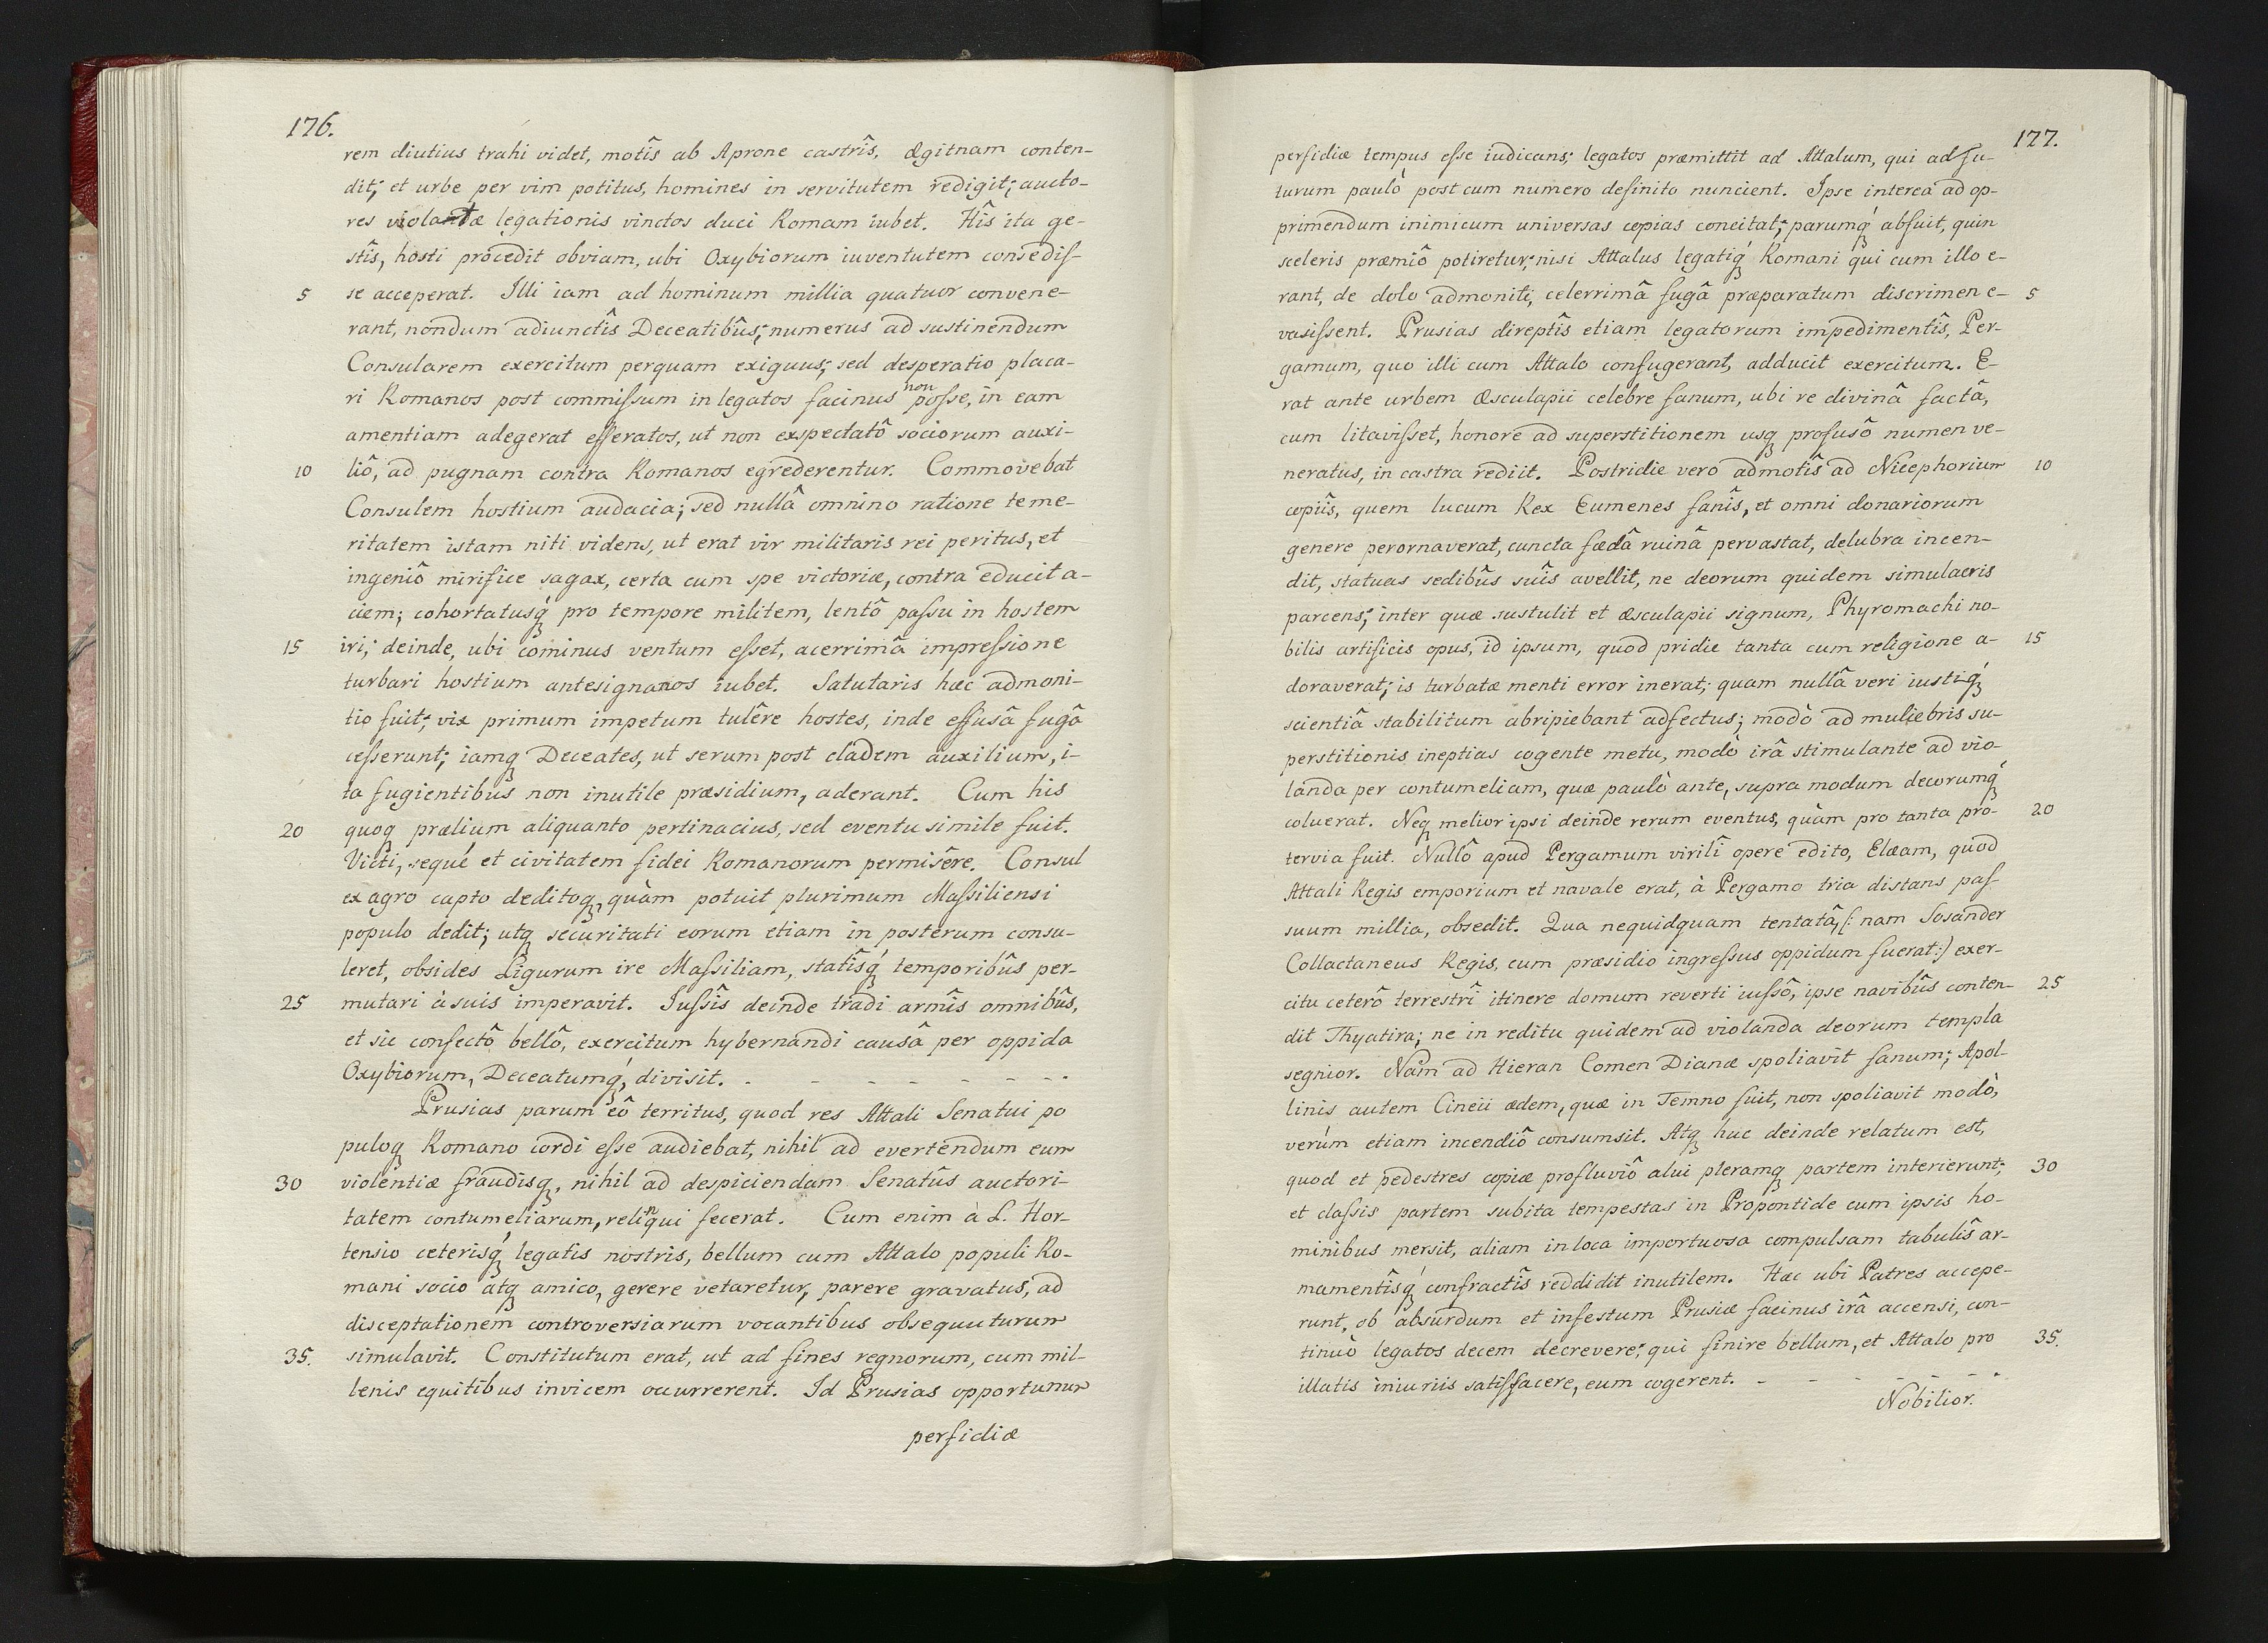 176.
rem diutius trahi videt, motîs ab Aprone castrîs, Ægitnam conten-
dit; et urbe per vim potitus, homines in servitutem redigit; aucto-
res violatæ legationis vinctos duci Romam iubet. Hîs ita ge-
stîs, hosti procedit obviam, ubi Oxybiorum iuventutem consedis-
5 se acceperat. Illi iam ad hominum millia quatuor convene-
rant, nondum adiunctîs Deceatibûs; numerus ad sustinendum
Consularem exercitum perquam exiguus; sed desperatio placa-
ri Romanos post commissum in legatos facinus non posse, in eam
amentiam adegerat efferatos, ut non exspectatô sociorum auxi-
10 liô, ad pugnam contra Romanos egrederentur. Commovebat
Consulem hostium audacia; sed nullâ omnino ratione teme-
ritatem istam niti videns, ut erat vir militaris rei peritus, et
ingeniô mirifice sagax, certa cum spe victoriæ, contra educit a-
ciem; cohortatusq́ pro tempore militem, lentô passu in hostem
15 iri; deinde, ubi cominus ventum esset, acerrimâ impressione
turbari hostium antesignanos iubet. Salutaris hæc admoni-
tio fuit; vix primum impetum tulêre hostes, inde effusâ fugâ
cesserunt; iamq Deceates, ut serum post cladem auxilium, i-
ta fugientibus non inutile præsidium, aderant. Cum his
20 quoq prælium aliquanto pertinacius, sed eventu simile fuit.
Victi, sequé et civitatem fidei Romanorum permisêre. Consul
ex agro capto deditoq, quàm potuit plurimum Massiliensi
populo dedit; utq securitati eorum etiam in posterum consu-
leret, obsides Ligurum ire Massiliam, statîsq́ temporibûs per-
25 mutari à suis imperavit. Iussîs deinde tradi armîs omnibûs,
et sic confectô bellô, exercitum hybernandi causâ per oppida
Oxybiorum, Deceatumq́, divisit. - - - - - - - -
Prusias parum eô territus, quod res Attali Senatui po
puloq Romano cordi esse audiebat, nihil ad evertendum eum
30 violentiæ fraudisq, nihil ad despiciendam Senatûs auctori-
tatem contumeliarum, relinqui fecerat. Cum enim à L. Hor-
tensio ceterisq́ legatis nostris, bellum cum Attalo populi Ro-
mani socio atq amico, gerere vetaretur, parere gravatus, ad
disceptationem controversiarum vocantibus obsequuturum
35. simulavit. Constitutum erat, ut ad fines regnorum, cum mil-
lenis equitibus invicem occurrerent. Id Prusias opportunum
perfidiæ
177.
perfidiæ tempus esse iudicans; legatos præmittit ad Attalum, qui adfu-
turum paulò post cum numero definito nuncient. Ipse interea ad op-
primendum inimicum universas copias concitat; parumq́ absuit, quin
sceleris præmiô potiretur; nisi Attalus legatiq́ Romani qui cum illo e-
rant, de dolo admoniti, celerrimâ fugâ præparatum discrimen e- 5
vasissent. Prusias direptîs etiam legatorum impedimentîs, Per-
gamum, quo illi cum Attalo confugerant, adducit exercitum. E-
rat ante urbem Æsculapii celebre fanum, ubi re divinâ factâ,
cum litavisset, honore ad superstitionem usq profusô numen ve-
neratus, in castra rediit. Postridie vero admotîs ad Nicephorium 10
copiîs, quem lucum Rex Eumenes fanîs, et omni donariorum
genere perornaverat, cuncta fœdâ ruinâ pervastat, delubra incen-
dit, statuas sedibûs suîs avellit, ne deorum quidem simulacris
parcens; inter quæ sustulit et Æsculapii signum, Phyromachi no-
bilis artificis opus, id ipsum, quod pridie tanta cum religione a- 15
doraverat; is turbatæ menti error inerat; quam nullâ veri iustiq́
scientiâ stabilitum abripiebant adfectus; modò ad muliebris su-
perstitionis ineptias cogente metu, modò irâ stimulante ad vio-
landa per contumeliam, quæ paulò ante, supra modum decorumq́
coluerat. Neq melior ipsi deinde rerum eventus, quàm pro tanta pro- 20
tervia fuit. Nullô apud Pergamum virilî opere edito, Elæam, quod
Attali Regis emporium et navale erat, à Pergamo tria distans pas
suum millia, obsedit. Qua nequidquam tentatâ, (: nam Sosander
Collactaneus Regis, cum præsidio ingressus oppidum fuerat:) exer-
citu ceterô terrestrî itinere domum reverti iussô, ipse navibûs conten- 25
dit Thyatira; ne in reditu quidem ad violanda deorum templa
segnior. Nam ad Hieran Comen Dianæ spoliavit fanum; Apol-
linis autem Cineii ædem, quæ in Temno fuit, non spoliavit modò,
verùm etiam incendiô consumsit. Atq huc deinde relatum est,
quod et pedestres copiæ profluviô alui pleramq partem interierunt; 30
et classis partem subita tempestas in Propontide cum ipsis ho-
minibus mersit, aliam in loca importuosa compulsam tabulîs ar-
mamentîsq́ confractîs reddidit inutilem. Hæc ubi Patres accepe-
runt, ob absurdum et infestum Prusiæ facinus irâ accensi, con-
tinuò legatos decem decrevere; qui finire bellum, et Attalo pro 35.
illatis iniuriis satisfacere, eum cogerent. - - - - - -
Nobilior.